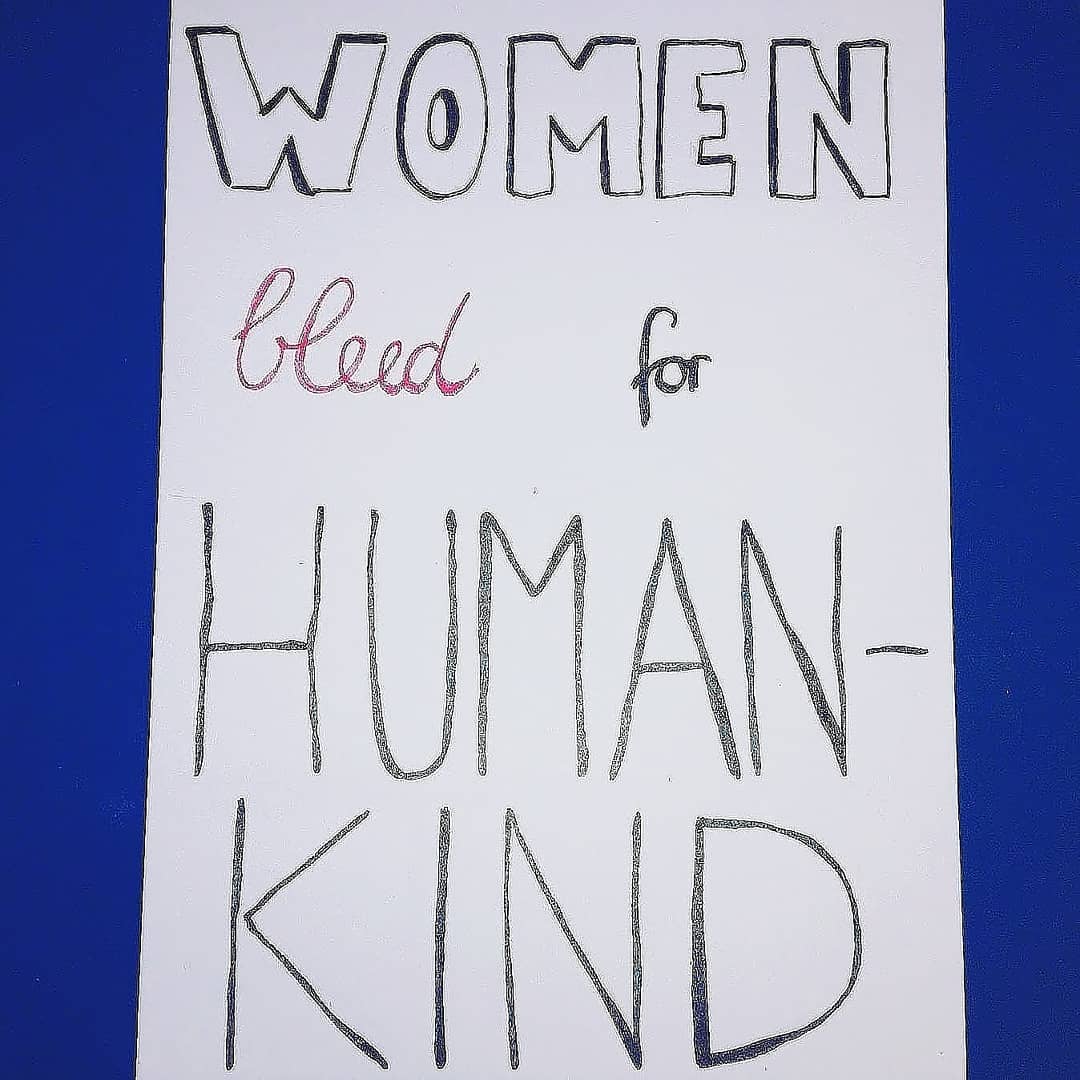 WOMEN
bleed for
HUMAN-
KIND